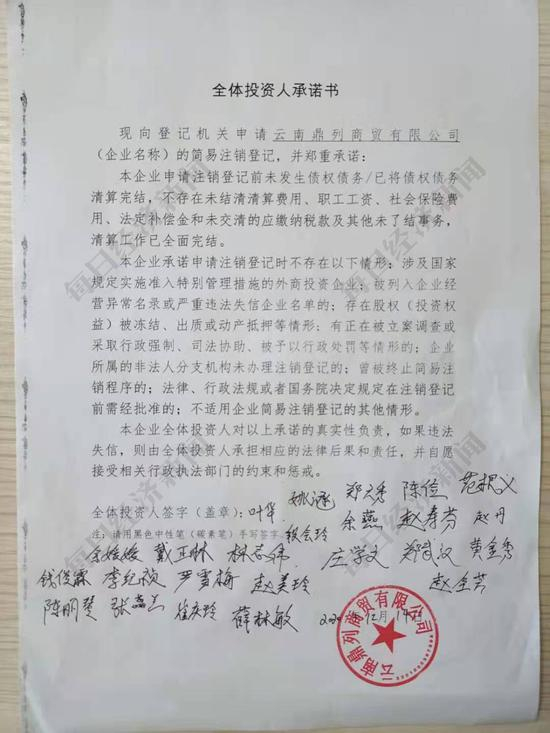 全体投资人承诺书
现向登记机关申请云南鼎列商贸有限公司
（企业名称）的简易注销登记，并郑重承诺：
本企业申请注销登记前未发生债权债务/已将债权债务
清算完结，不存在未结清清算费用、职工工资、社会保险费
用、法定补偿金和未交清的应缴纳税款及其他未了结事务，
清算工作已全面完结。
本企业承诺申请注销登记时不存在以下情形：涉及国家
规定实施准入特别管理措施的外商投资企业；被列入企业经
营异常名录或严重违法失信企业名单的；存在股权（投资权
益）被冻结、出质或动产抵押等情形；有正在被立案调查或
采取行政强制、司法协助、被予以行政处罚等情形的；企业
所属的非法人分支机构未办理注销登记的；曾被终止简易注
销程序的；法律、行政法规或者国务院决定规定在注销登记
前需经批准的；不适用企业简易注销登记的其他情形。
本企业全体投资人对以上承诺的真实性负责，如果违法
失信，则由全体投资人承担相应的法律后果和责任，并自愿
接受相关行政执法部门的约束和惩戒。
全体投资人签字（盖章）：叶华 姚涵 郑云秀 陈俭
注：请用黑色中性笔（碳素笔）手写签字 余燕 赵春芬 赵丹
戴正林 林志伟 庄学文 郑武汉 黄金秀
钱俊霖 李纪 严雪梅 赵美玲 赵全芬
陈丽琴 张 崔庆玲 薛林敏 月14日
云南鼎列商贸有限公司
每日经济新闻
每日经济新闻
每日经济新闻
每日经济新闻